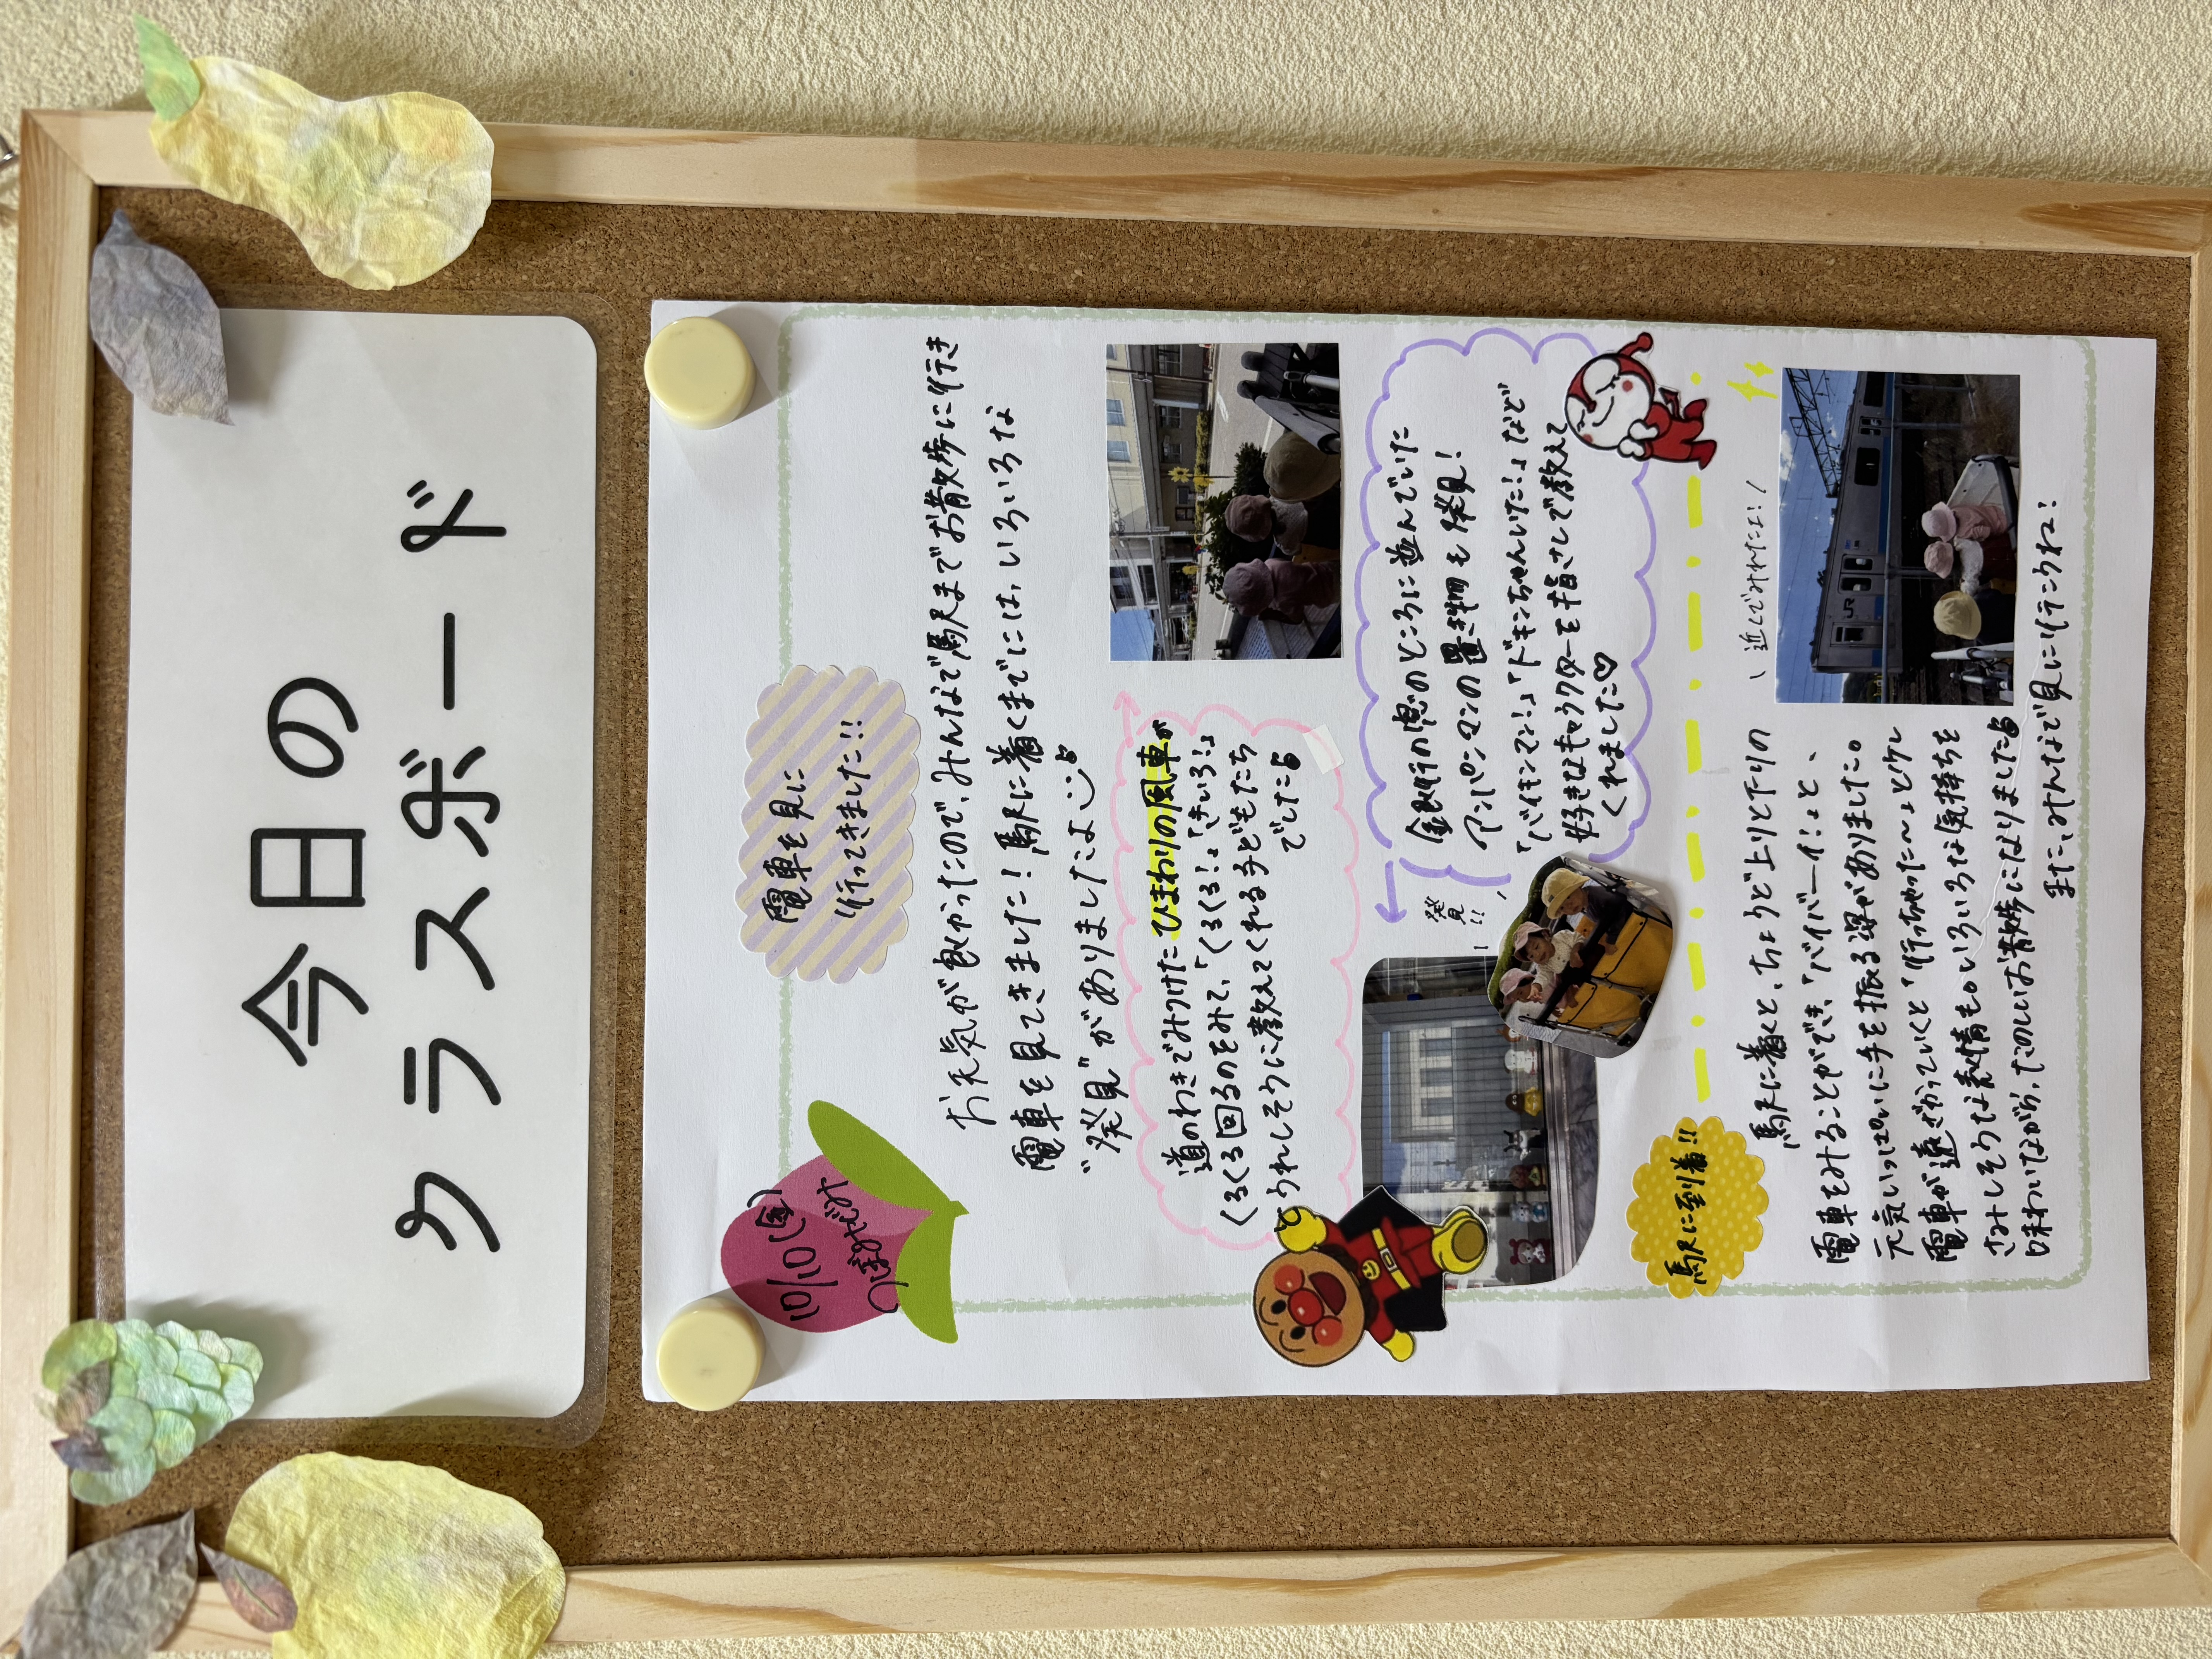 今日の
クラスボード
10/10(金)
つぼみぐみ
電車を見に
行ってきました!!
お天気が良かったので、みんなで駅までお散歩に行き
電車を見てきました！駅に着くまでには、いろいろな
"発見"がありましたよ
道のわきでみつけたひまわりの風車が
くるくる回るのをみて、「くるくる！」「きいろ！」
とうれしそうに教えてくれる子どもたち
でした♪
銀行の窓のところに並んでいた
アンパンマンの置き物も発見！
「バイキンマン！」「ドキンちゃんいた！」など
好きなキャラクターを指さしで教えて
くれました♡
発見!!
駅に到着!!
近くでみれたよ！
駅に着くと、ちょうど上りと下りの
電車をみることができ、「バイバーイ！」と、
元気いっぱいに手を振る姿がありました。
電車が遠ざかっていくと「行っちゃった〜」と少し
さみしそうな表情も。いろいろな気持ちを
味わいながら、たのしいお散歩になりました♪
また、みんなで見に行こうね！
JR